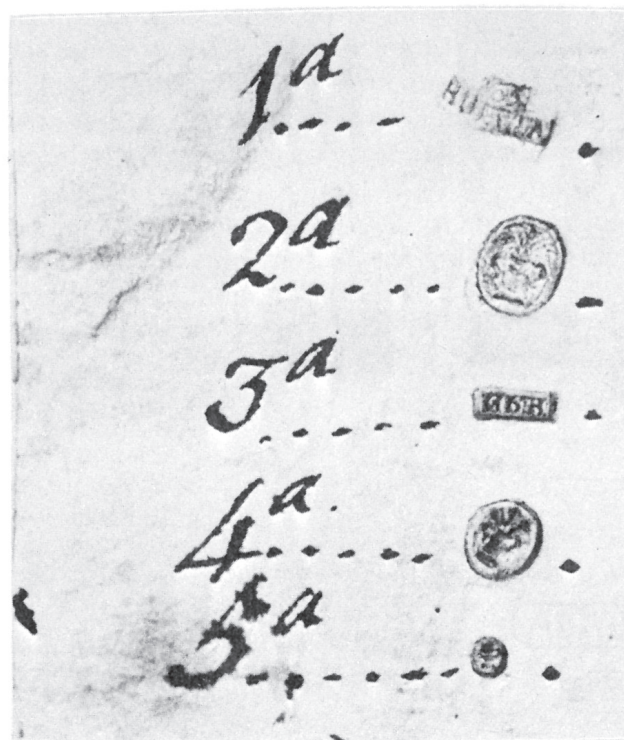 1ª .....
2ª ......
3ª ......
4ª. ......
5ª ........